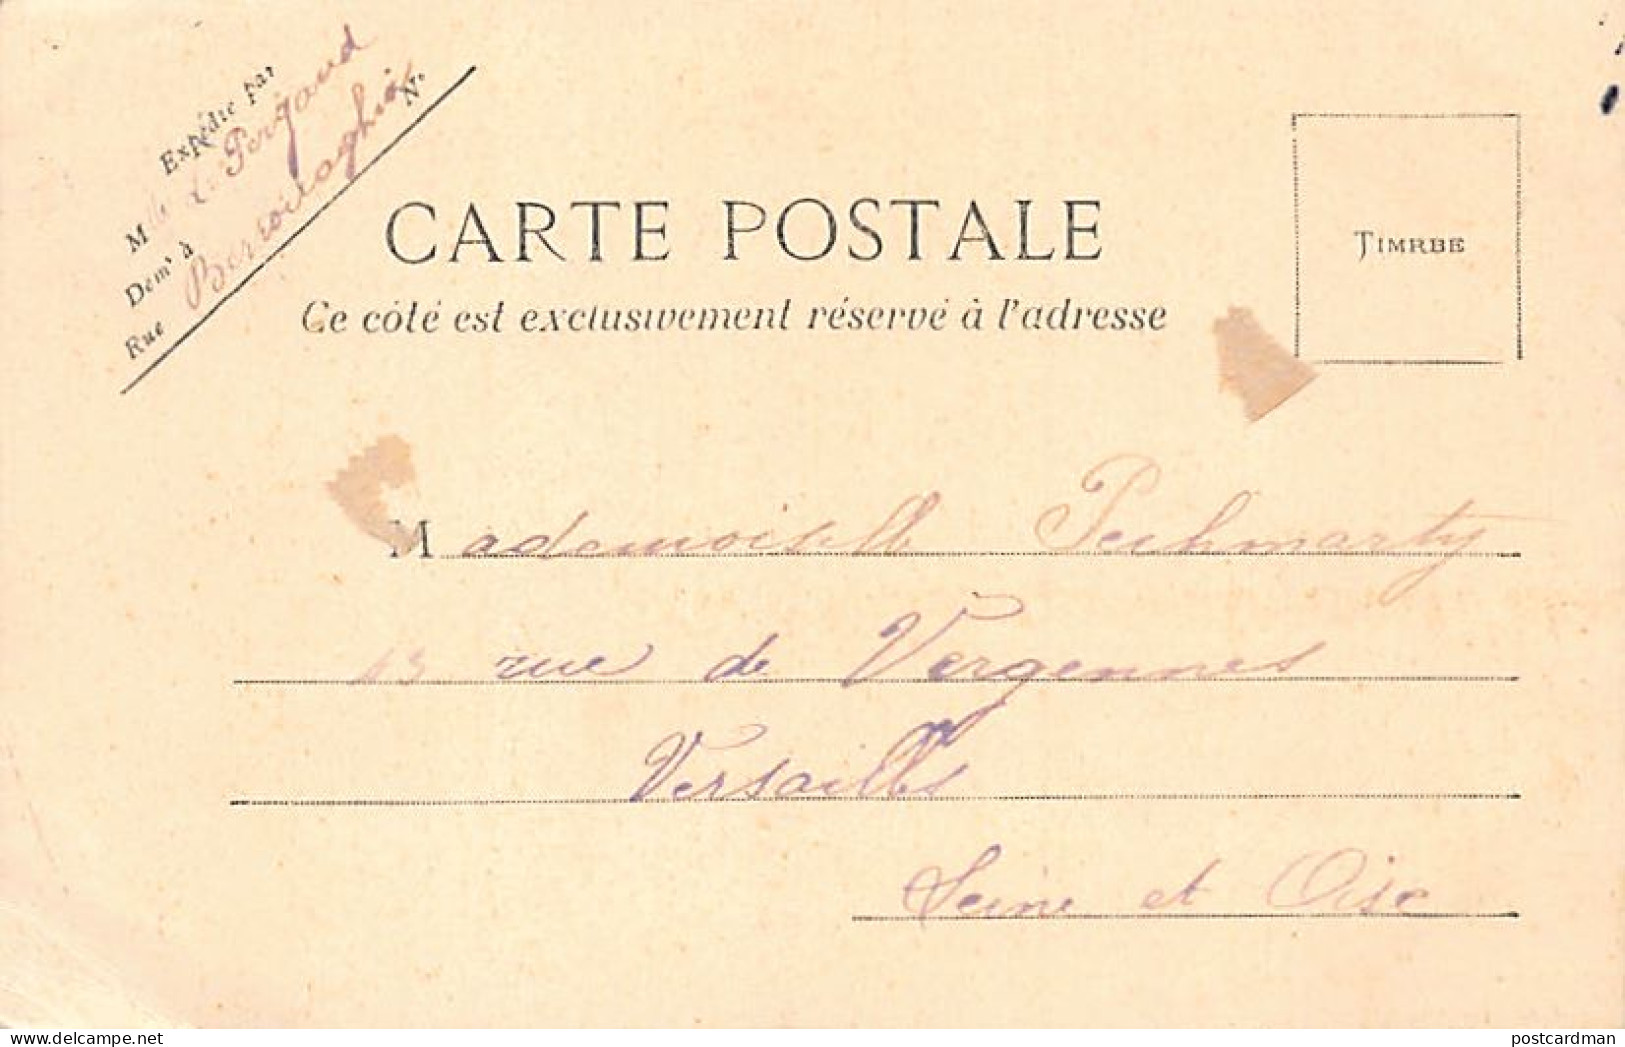 Expédié par
Mlle L. Perjaud
Demt à Berrouaghia
Rue N°
CARTE POSTALE
Ce côté est exclusivement réservé à l'adresse
TIMRBE
Mademoiselle Puhmarty
13 rue de Vergennes
Versailles
Seine et Oise
postcardman